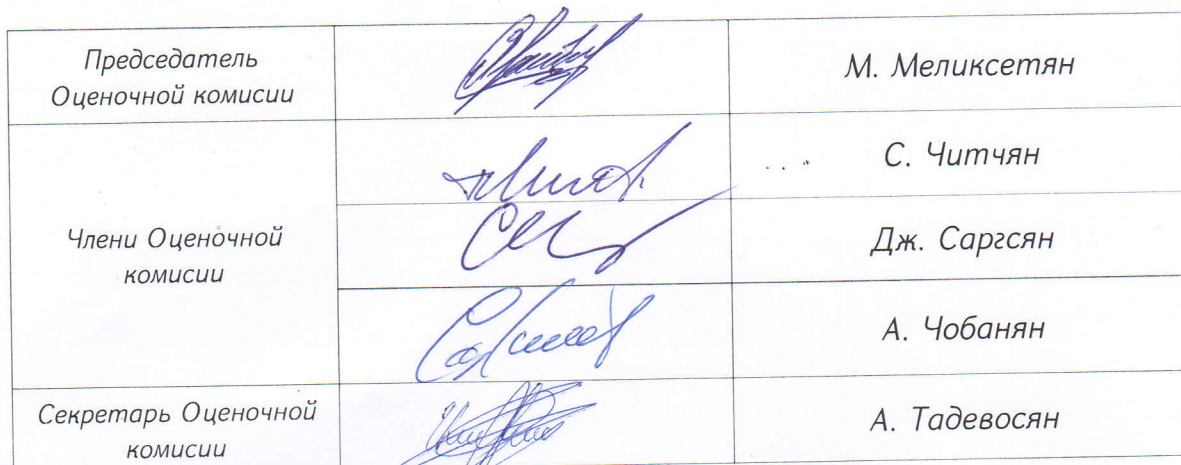 Председатель
Оценочной комисии
М. Меликсетян
С. Читчян
Члени Оценочной
комисии
Дж. Саргсян
А. Чобанян
Секретарь Оценочной
комисии
А. Тадевосян